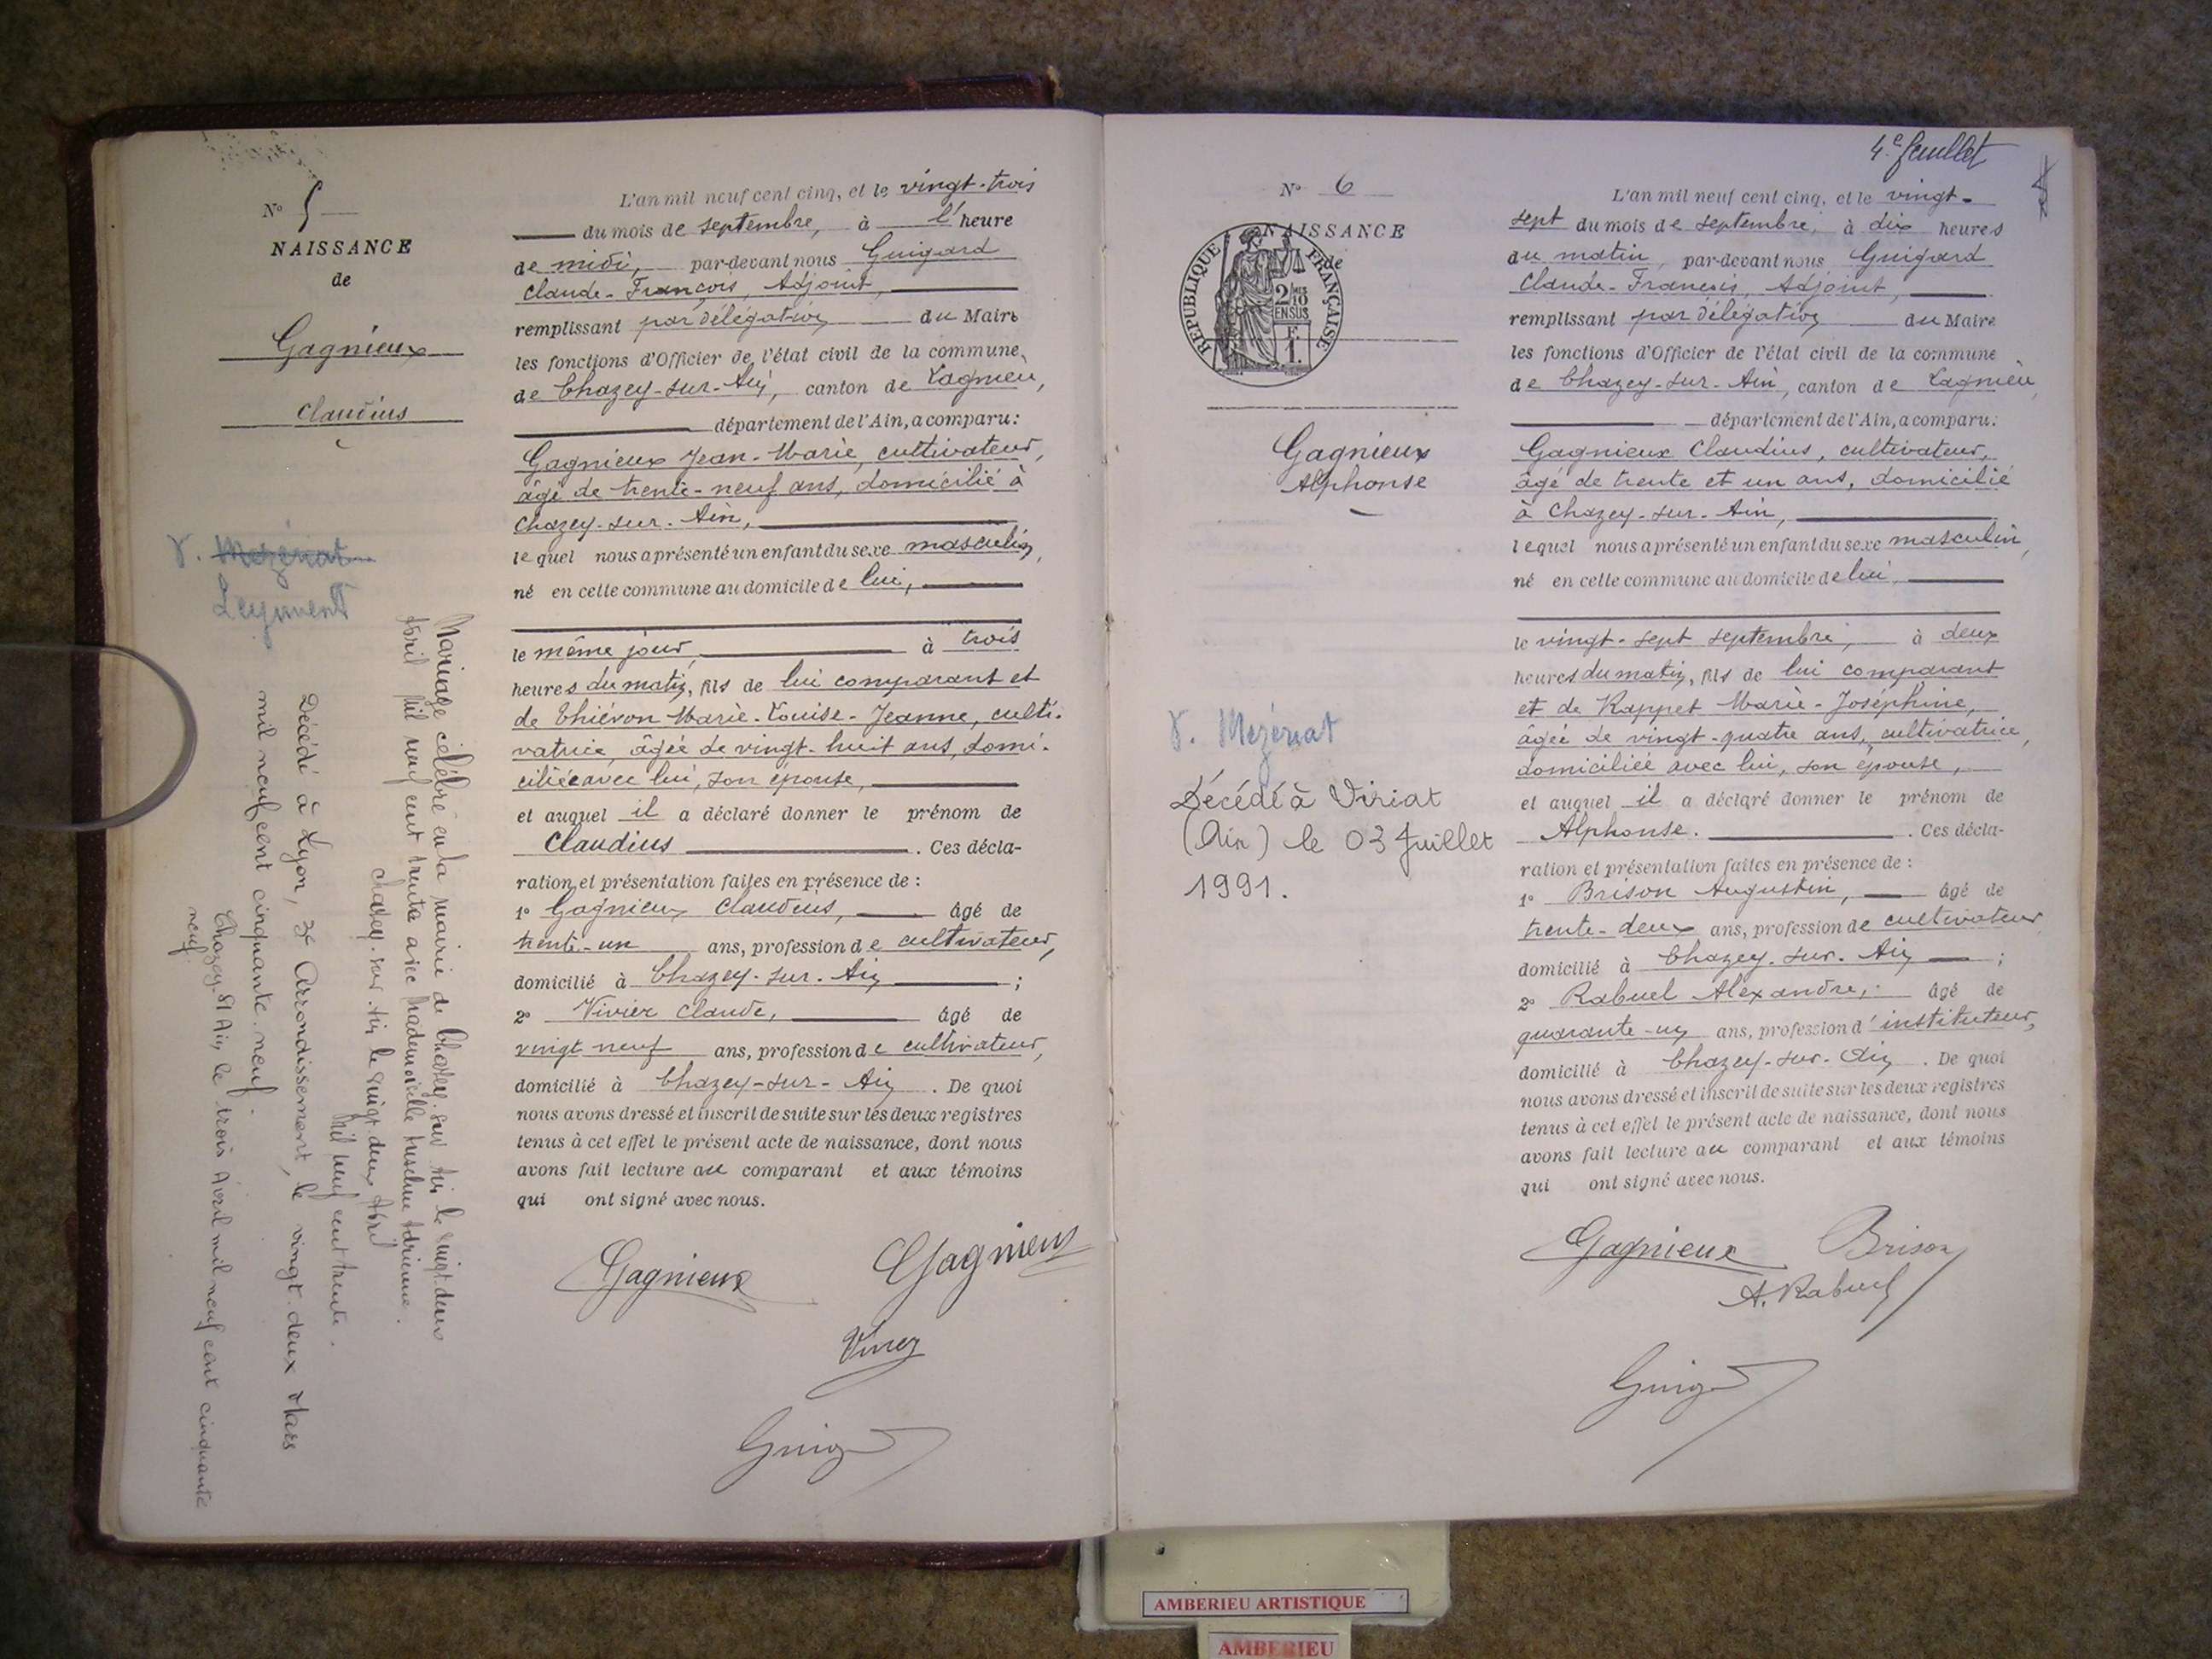 N° 5
NAISSANCE
de
Gagnieux
Claudius
V. Mezériat
Leyment
Mariage célébré en la mairie de Chazey-sur-Ain le vingt-deux
Avril Mil neuf cent trente avec Mademoiselle Adrienne.
Chazey-sur-Ain le vingt-deux Avril
Mil neuf cent trente.
Décédé à Lyon, 3e Arrondissement, le vingt-deux Mars
mil neuf cent cinquante-neuf.
Chazey St Ain, le trois Avril mil neuf cent cinquante
neuf.
L'an mil neuf cent cinq, et le vingt-trois
du mois de septembre, à l'heure
de midi, par-devant nous Guigard
Claude-François, Adjoint,
remplissant par délégation du Maire
les fonctions d'Officier de l'état civil de la commune
de Chazey-sur-Ain, canton de Lagnieu,
département de l'Ain, a comparu:
Gagnieux Jean-Marie, cultivateur,
âgé de trente-neuf ans, domicilié à
Chazey-sur-Ain,
lequel nous a présenté un enfant du sexe masculin,
né en cette commune au domicile de lui,
le même jour, à trois
heures du matin, fils de lui comparant et
de Thiévon Marie-Louise-Jeanne, culti-
vatrice, âgée de vingt-huit ans, domi-
ciliée avec lui, son épouse,
et auquel il a déclaré donner le prénom de
Claudius. Ces décla-
ration et présentation faites en présence de :
1° Gagnieux Claudius, âgé de
trente-un ans, profession de cultivateur,
domicilié à Chazey-sur-Ain ;
2° Vivier Claude, âgé de
vingt neuf ans, profession de cultivateur,
domicilié à Chazey-sur-Ain. De quoi
nous avons dressé et inscrit de suite sur les deux registres
tenus à cet effet le présent acte de naissance, dont nous
avons fait lecture au comparant et aux témoins
qui ont signé avec nous.
Gagnieux Gagnieux
Vivier
Guigard
4e feuillet
N° 6
NAISSANCE
de
RÉPUBLIQUE FRANÇAISE
2/10
EN SUS
F
1.
Gagnieux
Alphonse
V. Mezériat
Décédé à Viriat
(Ain) le 03 Juillet
1991.
L'an mil neuf cent cinq, et le vingt-
sept du mois de septembre, à dix heures
du matin, par-devant nous Guigard
Claude-François, Adjoint,
remplissant par délégation du Maire
les fonctions d'Officier de l'état civil de la commune
de Chazey-sur-Ain, canton de Lagnieu,
département de l'Ain, a comparu:
Gagnieux Claudius, cultivateur,
âgé de trente et un ans, domicilié
à Chazey-sur-Ain,
lequel nous a présenté un enfant du sexe masculin,
né en cette commune au domicile de lui,
le vingt-sept septembre, à deux
heures du matin, fils de lui comparant
et de Rappet Marie-Joséphine,
âgée de vingt-quatre ans, cultivatrice,
domiciliée avec lui, son épouse,
et auquel il a déclaré donner le prénom de
Alphonse. Ces décla-
ration et présentation faites en présence de :
1° Brison Augustin, âgé de
trente-deux ans, profession de cultivateur
domicilié à Chazey-sur-Ain ;
2° Rabuel Alexandre, âgé de
quarante-un ans, profession d'instituteur,
domicilié à Chazey-sur-Ain. De quoi
nous avons dressé et inscrit de suite sur les deux registres
tenus à cet effet le présent acte de naissance, dont nous
avons fait lecture au comparant et aux témoins
qui ont signé avec nous.
Gagnieux Brison
A. Rabuel
Guigard
AMBERIEU ARTISTIQUE
AMBERIEU